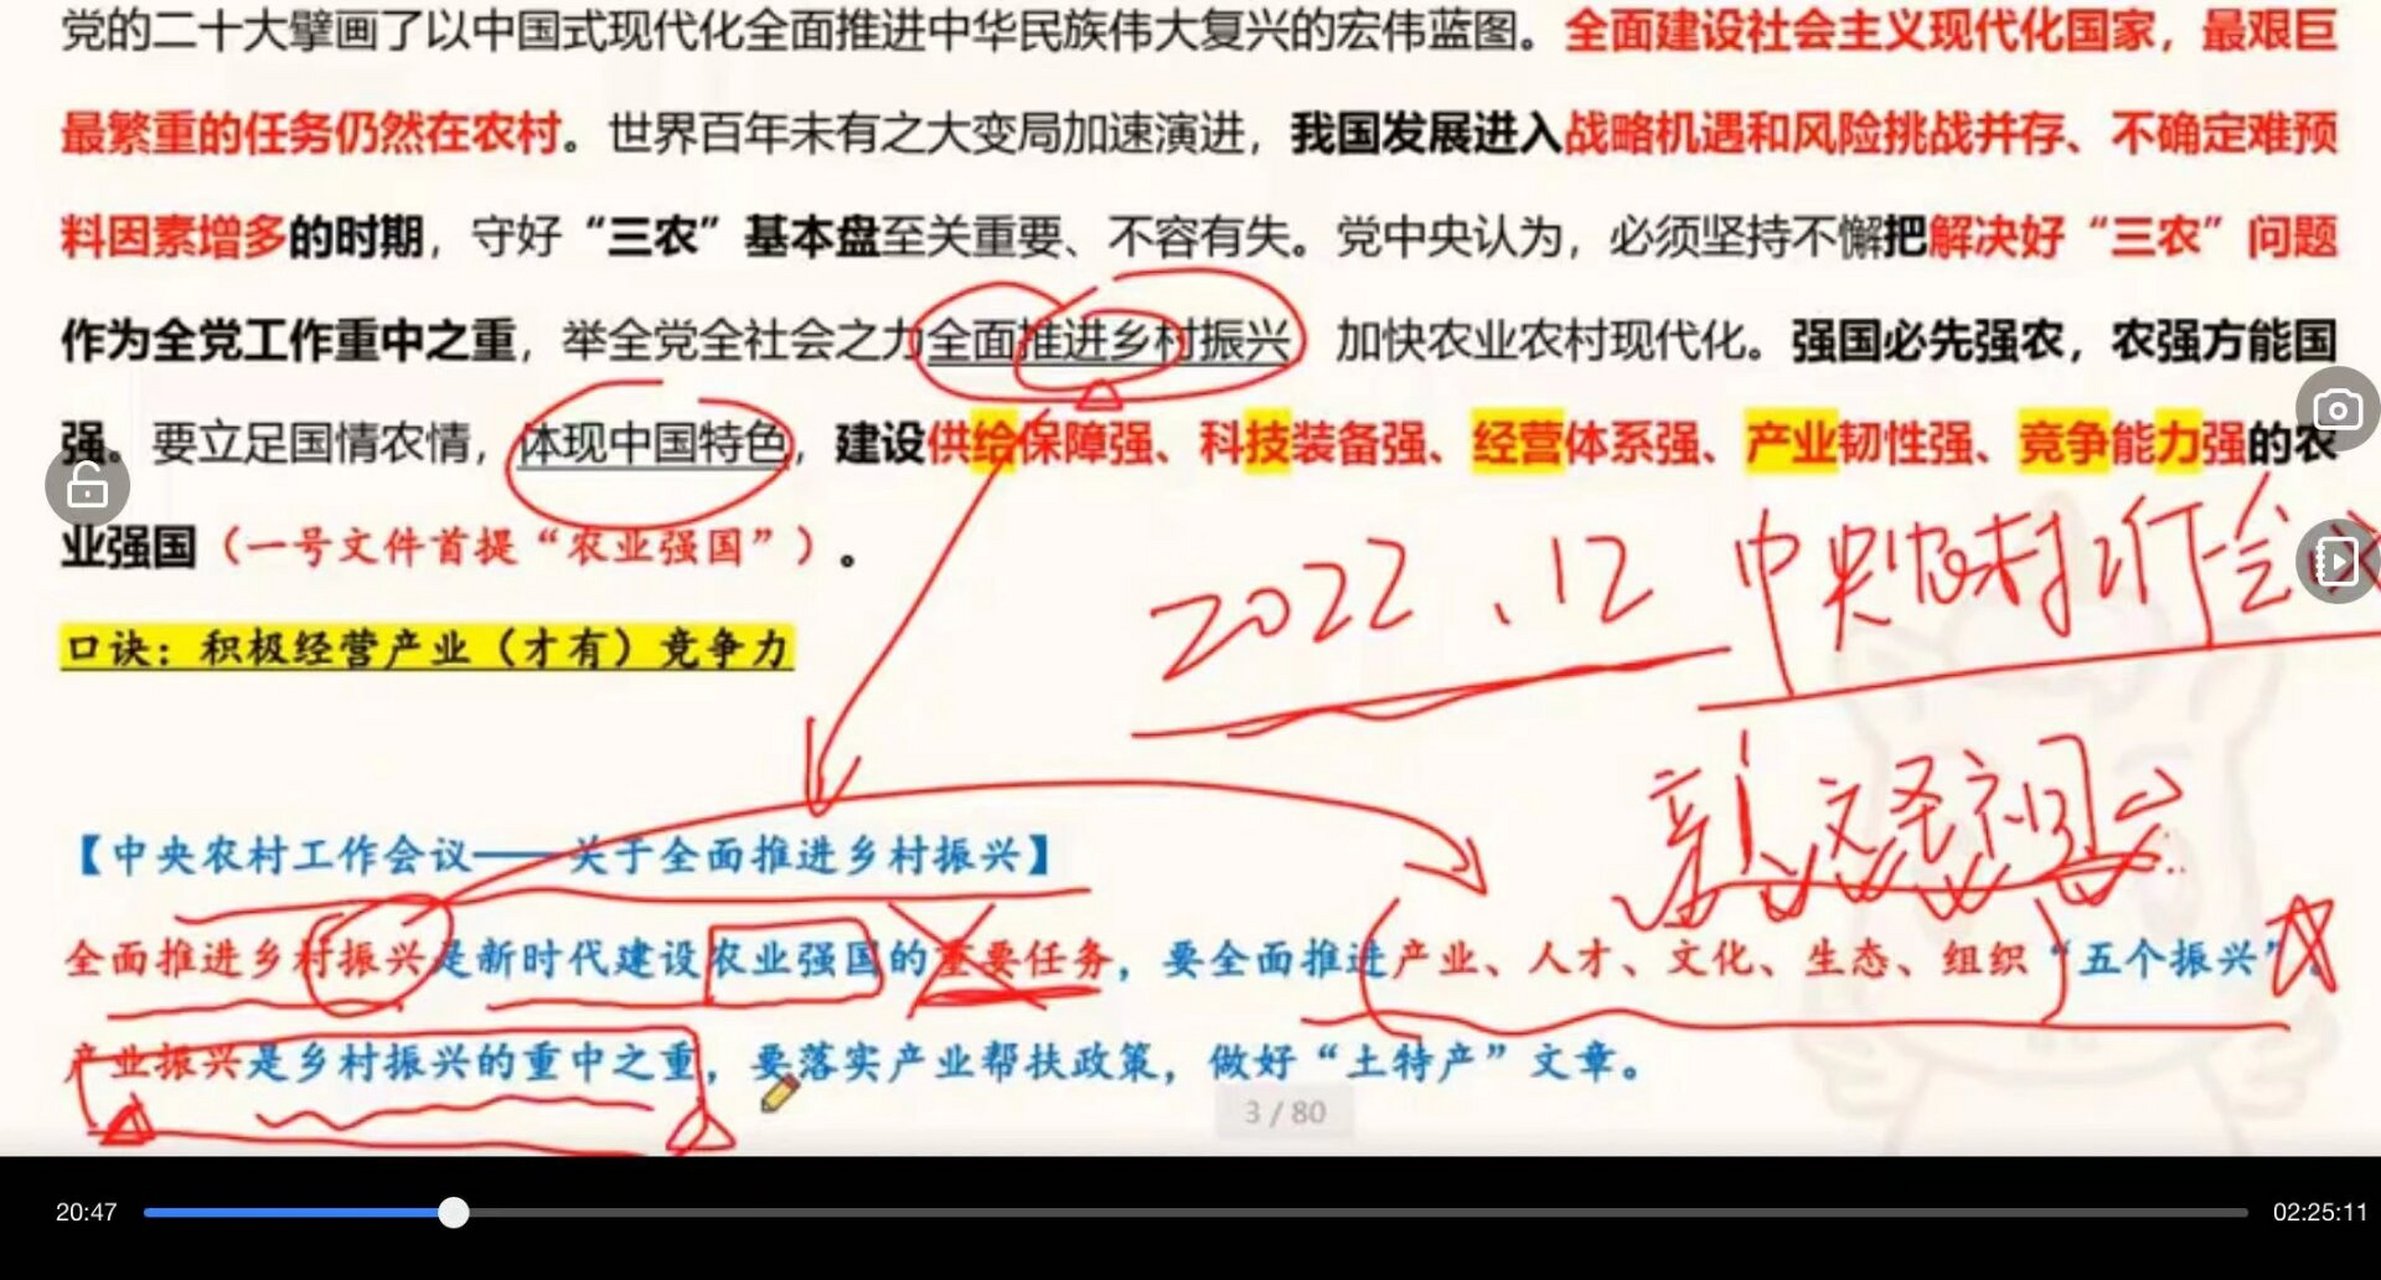 党的二十大擘画了以中国式现代化全面推进中华民族伟大复兴的宏伟蓝图。全面建设社会主义现代化国家，最艰巨
最繁重的任务仍然在农村。世界百年未有之大变局加速演进，我国发展进入战略机遇和风险挑战并存、不确定难预
料因素增多的时期，守好“三农”基本盘至关重要、不容有失。党中央认为，必须坚持不懈把解决好“三农”问题
作为全党工作重中之重，举全党全社会之力全面推进乡村振兴，加快农业农村现代化。强国必先强农，农强方能国
强。要立足国情农情，体现中国特色，建设供给保障强、科技装备强、经营体系强、产业韧性强、竞争能力强的农
业强国（一号文件首提“农业强国”）。
2022.12 中央农村工作会议
口诀：积极经营产业（才有）竞争力
【中央农村工作会议——关于全面推进乡村振兴】
全面推进乡村振兴是新时代建设农业强国的重要任务，要全面推进产业、人才、文化、生态、组织“五个振兴”。
产业振兴是乡村振兴的重中之重，要落实产业帮扶政策，做好“土特产”文章。
3 / 80
20:47
02:25:11